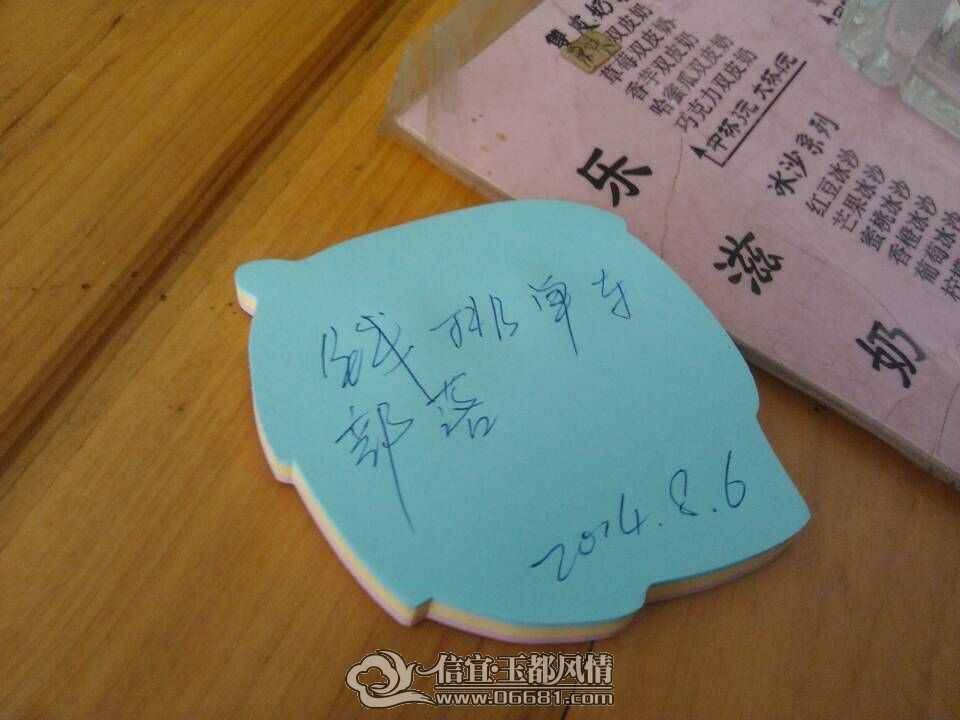 钱排单车
部落
2014.8.6
双皮奶
草莓双皮奶
香芋双皮奶
哈蜜瓜双皮奶
巧克力双皮奶
中杯3元 大杯4元
乐滋奶
冰沙系列
红豆冰沙
芒果冰沙
蜜桃冰沙
香橙冰沙
葡萄冰沙
信宜·玉都风情
www.06681.com